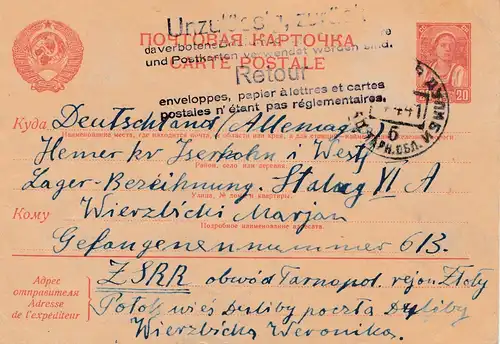 Unzulässig, zurück
ПОЧТОВАЯ КАРТОЧКА
da verbotene
und Postkarten verwendet worden sind.
CARTE POSTALE
Retour
enveloppes, papier à lettres et cartes
postales n'étant pas réglementaires.
20
Куда Deutschland Allemagne
Наименование места, где находится почта, и области или края, а для станции
Hemer kr Iserlohn i Westf
Район, село или деревня
Lager-Bezeichnung. Stalag VI A
Улица, № дома и квартиры.
Кому Wierzbicki Marjan
Подробное наименование адресата.
Gefangenennummer 613.
Адрес
отправителя
Adresse
de l'expéditeur
ZSRR obwód Tarnopol. rejon Złoty
Potok wieś Duliby poczta Duliby
Wierzbicka Weronika.